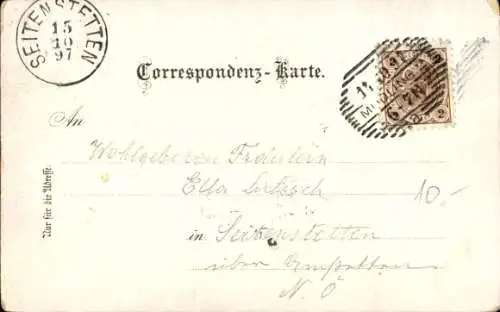 SEITENSTETTEN
15
10
97
Correspondenz-Karte.
2
An
Wohlgeboren Fräulein
Ella
10.-
in Seitenstetten
über Amstetten
N. Ö
Nur für die Adresse.